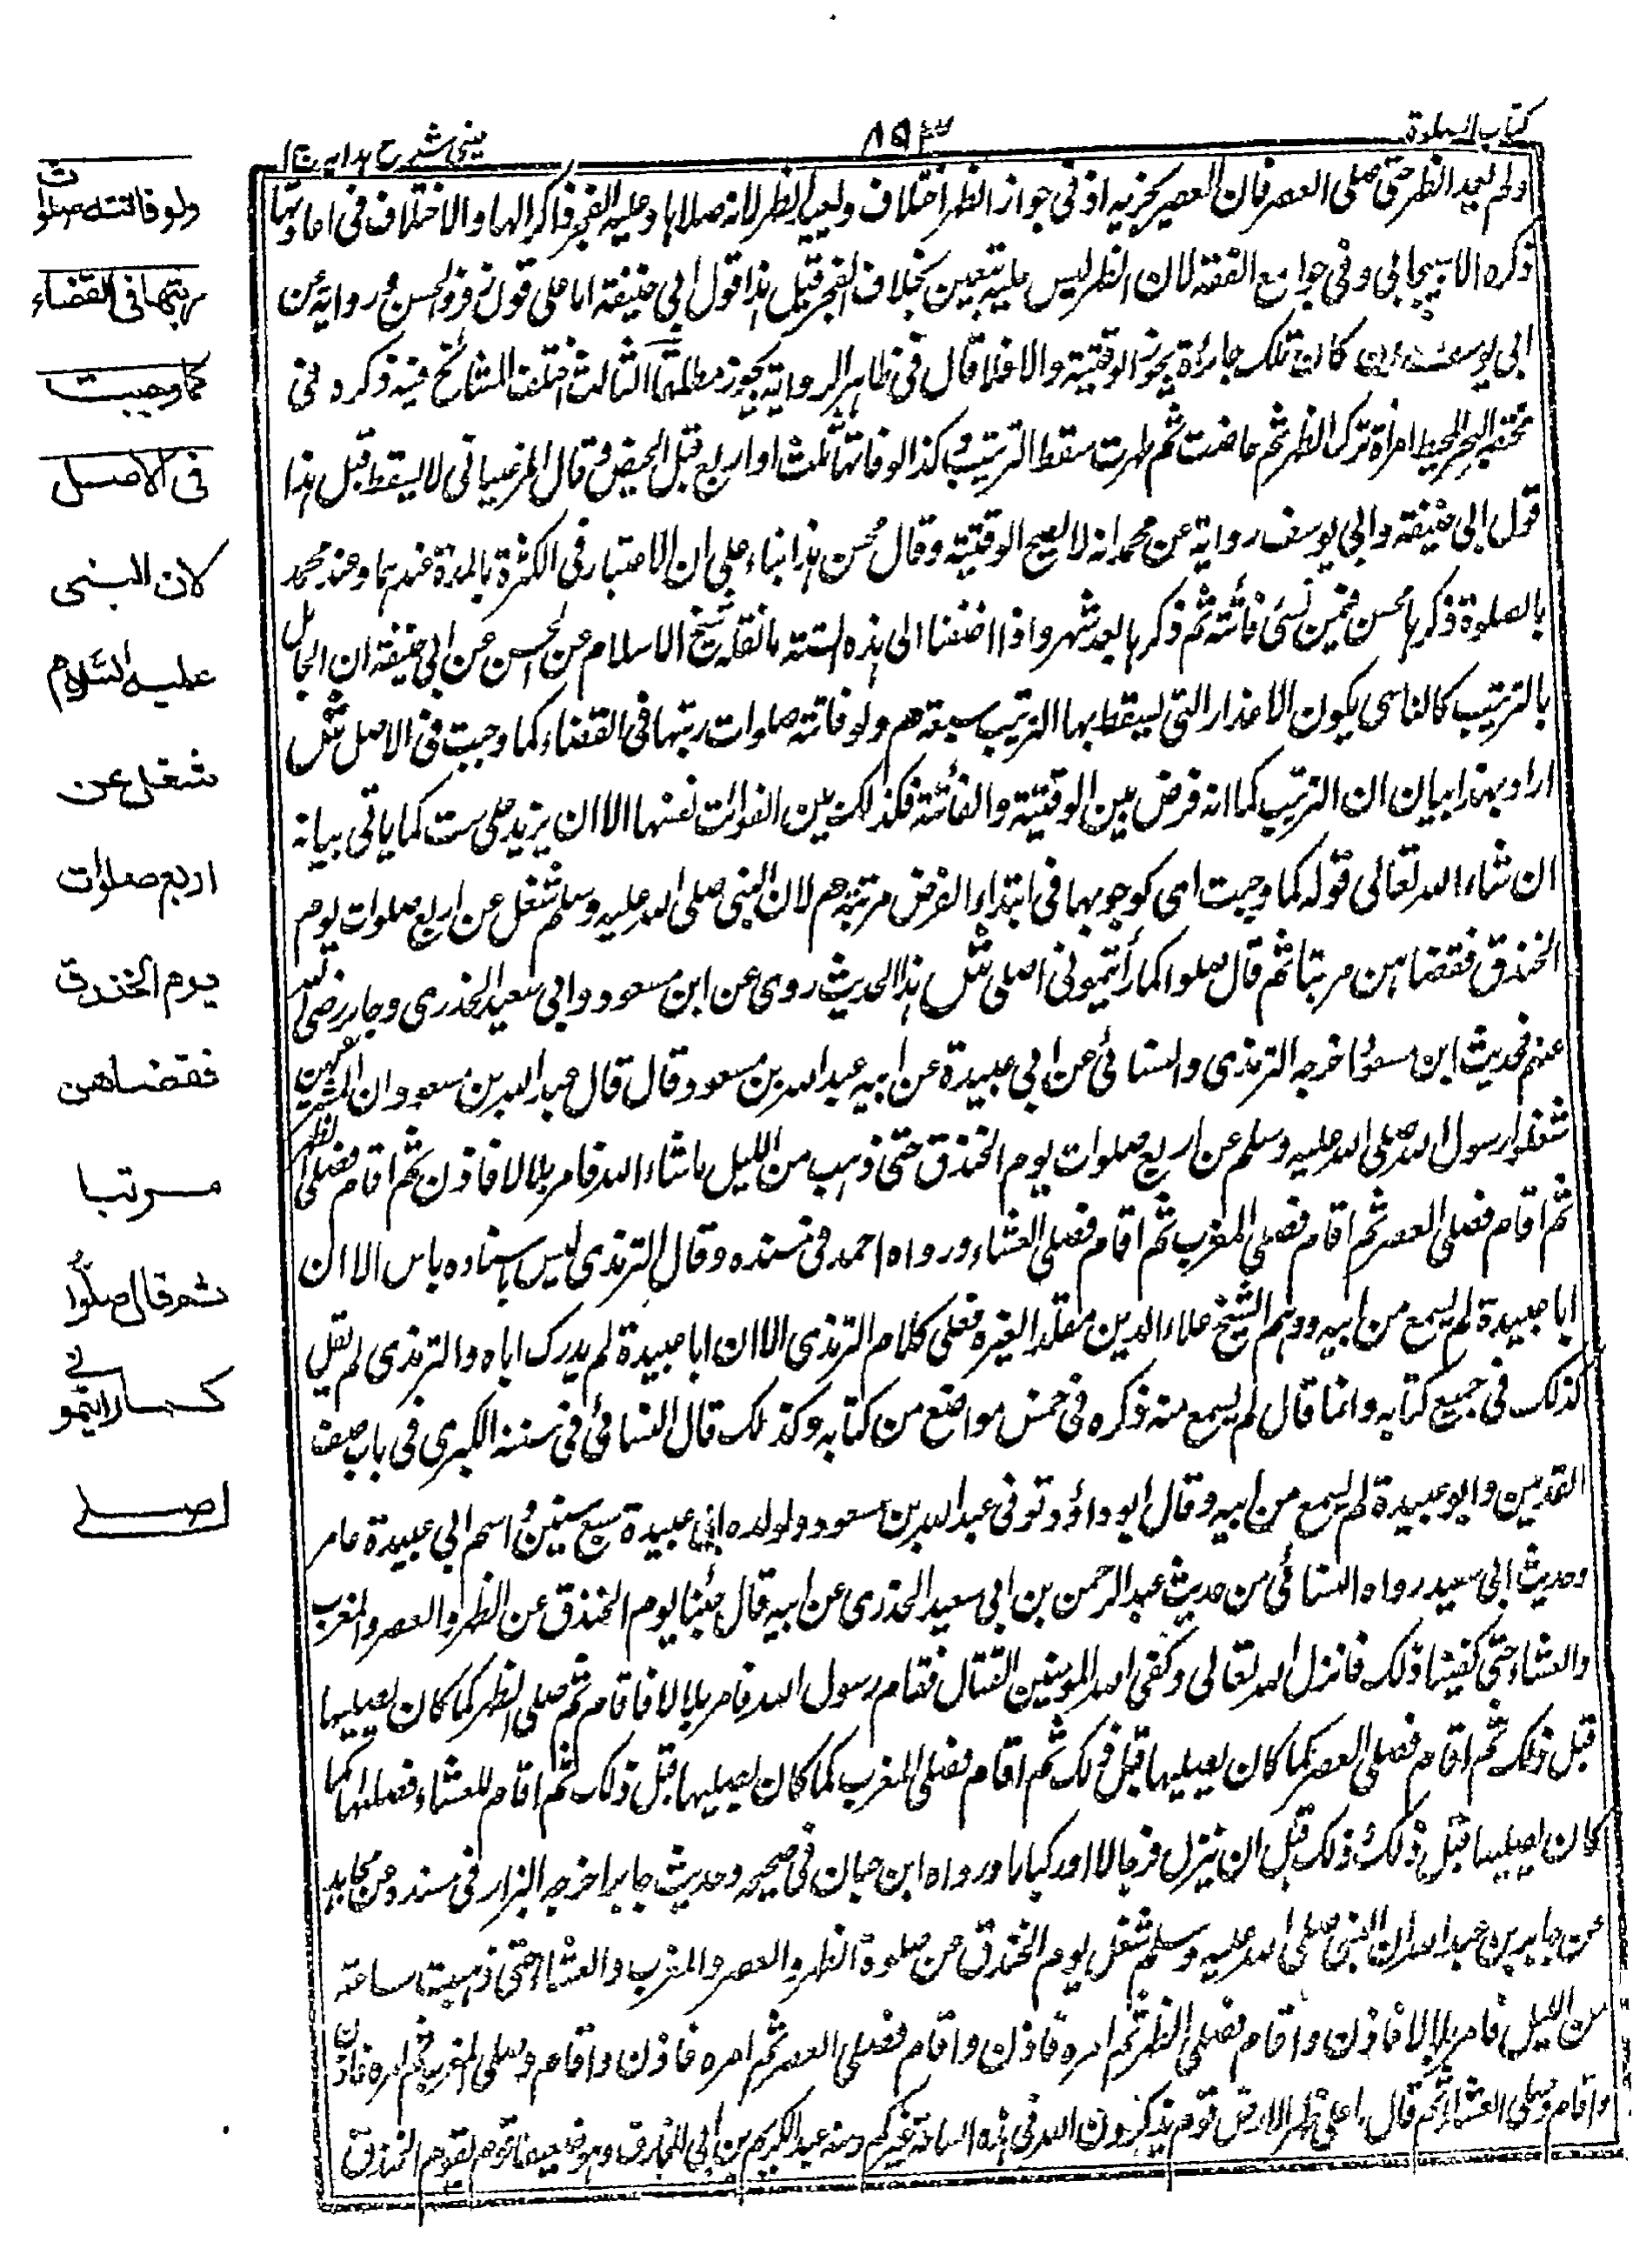 كتاب الصلوة
٨٥٣
عينى شرح هدايه ج ١
ولم يعد الظهر حتى صلى العصر فان العصر يجزيه اذ فى جواز الظهر اختلاف ويعيد الظهر لانه صلاها وعليه الفجر ذاكرا لها والاختلاف فى اعادتها
ذكره الاسبيجابى وفى جوامع الفقه لان الظهر ليس عليه بتعين بخلاف الفجر قيل هذا قول ابى حنيفة اما على قول زفر والحسن ورواية عن
ابى يوسف ان كان تلك جائزة يجوز الوقتية والا فلا قال فى ظاهر الرواية يجوز مطلقا الثالث اختلف المشائخ فيه ذكره فى
مختصر البحر المحيط امرأة ترك الظهر ثم حاضت ثم طهرت سقط الترتيب وكذا لو فاتها ثلث او اربع قبل الحيض وقال المرغينانى لا يسقط قيل هذا
قول ابى حنيفة وابى يوسف رواية عن محمد انه لا يصح الوقتية وقال محسن هذا بناء على ان الاعتبار فى الكثرة بالمدة عندهما وعند محمد
بالصلوة ذكرها محسن فيمن نسى فائتة ثم ذكرها بعد شهر واذا اضفنا الى هذه الستة ما نقله شيخ الاسلام عن الحسن عن ابى حنيفة ان الجاهل
بالترتيب كالناسى يكون الاعذار التى يسقط بها الترتيب سبعة هم ولو فاتته صلوات رتبها فى القضاء كما وجبت فى الاصل ش
اراد بهذا بيان ان الترتيب كما انه فرض بين الوقتية والفائتة فكذلك بين الفوائت نفسها الا ان يزيد على ست كما ياتى بيانه
ان شاء الله تعالى قوله كما وجبت اى كوجوبها فى ابتداء الفرض مرتبة هم لان النبى صلى الله عليه وسلم شغل عن اربع صلوات يوم
الخندق فقضاهن مرتبا ثم قال صلوا كما رأيتمونى اصلى ش هذا الحديث روى عن ابن مسعود وابى سعيد الخدرى وجابر رضى الله
عنهم فحديث ابن مسعود اخرجه الترمذى والنسائى عن ابى عبيدة عن ابيه عبد الله بن مسعود قال قال عبد الله بن مسعود ان المشركين
شغلوا رسول الله صلى الله عليه وسلم عن اربع صلوات يوم الخندق حتى ذهب من الليل ما شاء الله فامر بلالا فاذن ثم اقام فصلى الظهر
ثم اقام فصلى العصر ثم اقام فصلى المغرب ثم اقام فصلى العشاء ورواه احمد فى مسنده وقال الترمذى ليس باسناده باس الا ان
ابا عبيدة لم يسمع من ابيه ووهم الشيخ علاء الدين مقلدا لغيره فعلى كلام الترمذى الا ان ابا عبيدة لم يدرك اباه والترمذى لم يقل
كذلك فى جميع كتابه وانما قال لم يسمع منه ذكره فى خمس مواضع من كتابه وكذلك قال النسائى فى سننه الكبرى فى باب صف
القدمين وابو عبيدة لم يسمع من ابيه وقال ابو داؤد توفى عبد الله بن مسعود ولولده ابى عبيدة سبع سنين واسم ابى عبيدة عامر
وحديث ابى سعيد رواه النسائى من حديث عبد الرحمن بن ابى سعيد الخدرى عن ابيه قال حبسنا يوم الخندق عن الظهر والعصر والمغرب
والعشاء حتى كفينا ذلك فانزل الله تعالى وكفى الله المؤمنين القتال فقام رسول الله فامر بلالا فاقام ثم صلى الظهر كما كان يصليها
قبل ذلك ثم اقام فصلى العصر كما كان يصليها قبل ذلك ثم اقام فصلى المغرب كما كان يصليها قبل ذلك ثم اقام للعشاء فصلاها كما
كان يصليها قبل ذلك وذلك قبل ان ينزل فرجالا او ركبانا ورواه ابن حبان فى صحيحه وحديث جابر اخرجه البزار فى مسنده عن مجاهد
عن جابر بن عبد الله ان النبى صلى الله عليه وسلم شغل يوم الخندق عن صلوة الظهر والعصر والمغرب والعشاء حتى ذهبت ساعة
من الليل فامر بلالا فاذن واقام فصلى الظهر ثم امره فاذن واقام فصلى العصر ثم امره فاذن واقام وصلى المغرب ثم امره فاذن
واقام وصلى العشاء ثم قال ما على ظهر الارض قوم يذكرون الله فى هذه الساعة غيركم وفيه عبد الكريم بن ابى المخارق وهو ضعيف يوم الخندق
ولو فاتته صلوات
رتبها فى القضاء
كما وجبت
فى الاصل
لان النبى
عليه السلام
شغل عن
اربع صلوات
يوم الخندق
فقضاهن
مرتبا
ثم قال صلوا
كما رايتمونى
اصلى